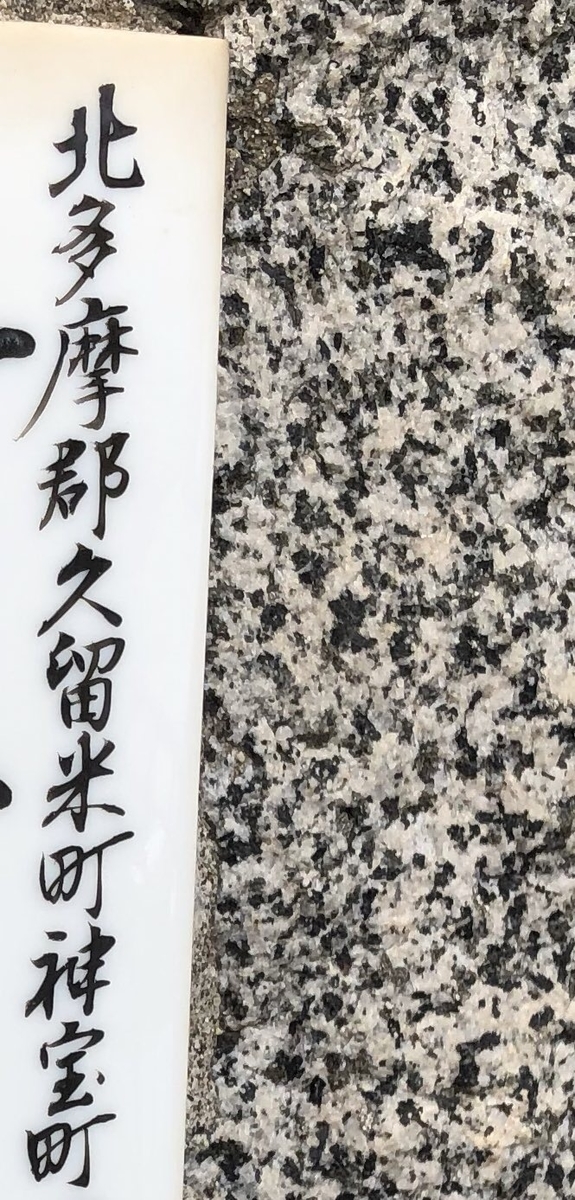 北多摩郡久留米町神宝町